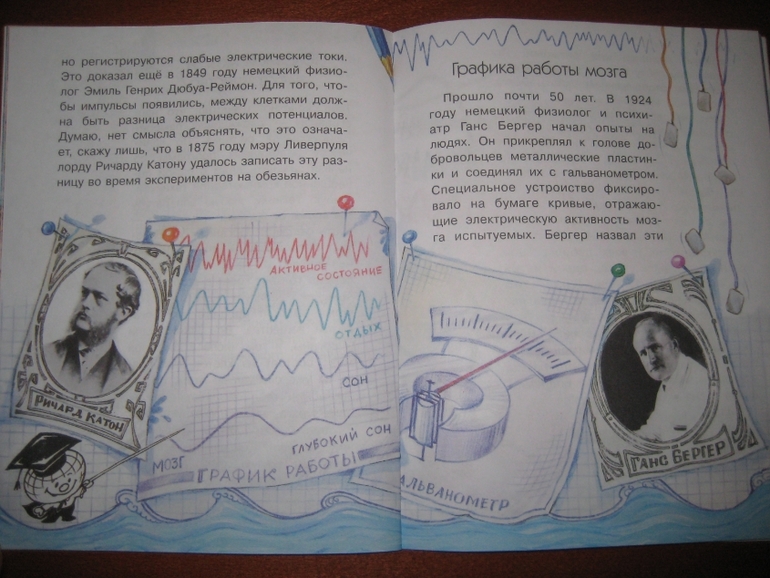 но регистрируются слабые электрические токи.
Это доказал ещё в 1849 году немецкий физио-
лог Эмиль Генрих Дюбуа-Реймон. Для того, что-
бы импульсы появились, между клетками долж-
на быть разница электрических потенциалов.
Думаю, нет смысла объяснять, что это означа-
ет, скажу лишь, что в 1875 году мэру Ливерпуля
лорду Ричарду Катону удалось записать эту раз-
ницу во время экспериментов на обезьянах.
АКТИВНОЕ
СОСТОЯНИЕ
ОТДЫХ
СОН
ГЛУБОКИЙ СОН
МОЗГ
ГРАФИК РАБОТЫ
РИЧАРД КАТОН
Графика работы мозга
Прошло почти 50 лет. В 1924
году немецкий физиолог и психи-
атр Ганс Бергер начал опыты на
людях. Он прикреплял к голове до-
бровольцев металлические пластин-
ки и соединял их с гальванометром.
Специальное устройство фиксиро-
вало на бумаге кривые, отражаю-
щие электрическую активность моз-
га испытуемых. Бергер назвал эти
АЛЬВАНОМЕТР
ГАНС БЕРГЕР